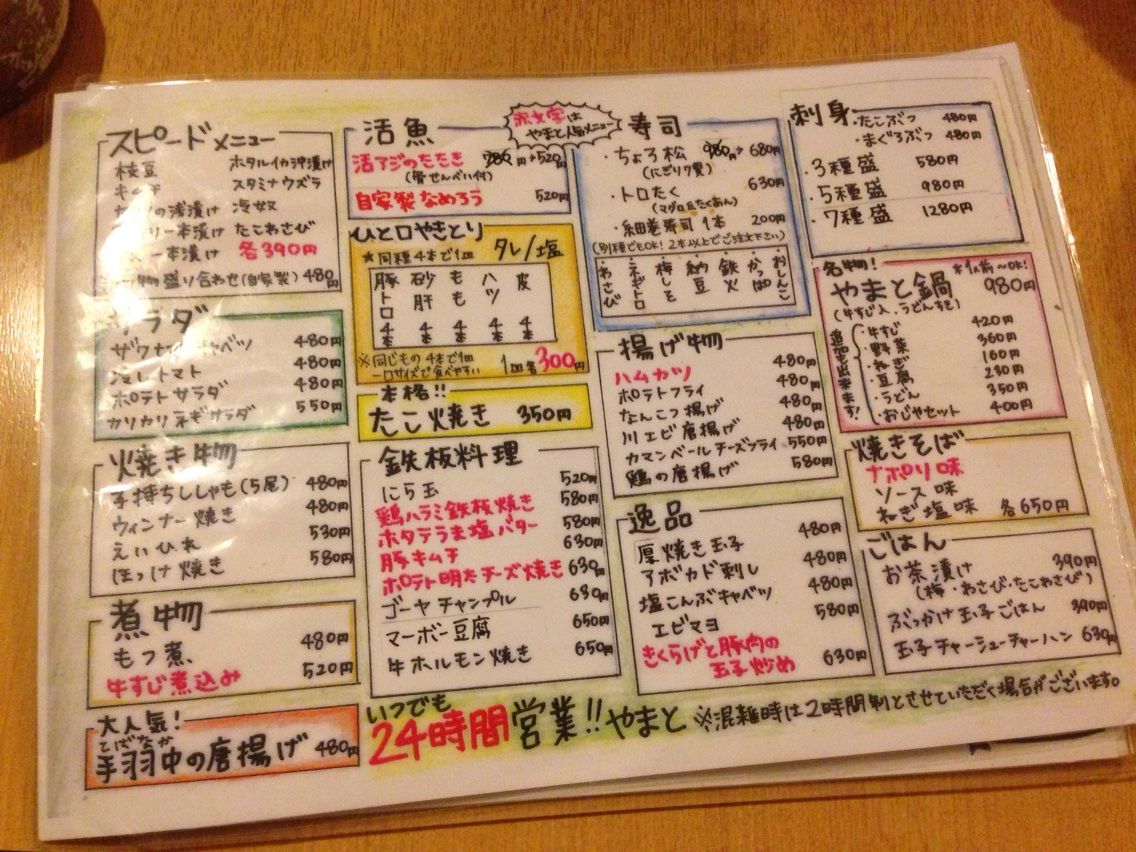 スピードメニュー
枝豆 ホタルイカ沖漬け
キムチ スタミナウズラ
の浅漬け 冷奴
一本漬け たこわさび
一本漬け 各390円
物盛り合わせ(自家製) 480
サラダ
ザク キャベツ 480円
冷しトマト 480円
ポテトサラダ 480円
カリカリネギサラダ 550円
焼き物
子持ちししゃも(5尾) 480円
ウィンナー焼き 480円
えいひれ 530円
ほっけ焼き 580円
煮物
もつ煮 480円
牛すじ煮込み 520円
大人気!
とばなか
手羽中の唐揚げ 480円
活魚
赤文字は
やまと人気メニュー
活アジのたたき 980円→520円
(骨せんべい付)
自家製なめろう 520円
ひと口やきとり
★同種4本で1皿 タレ/塩
豚トロ 4本
砂肝 4本
もも 4本
ハツ 4本
皮 4本
※同じもの4本で1皿
一口サイズで食べやすい 1皿各300円
本格!!
たこ焼き 350円
鉄板料理
にら玉 520円
鶏ハラミ鉄板焼き 580円
ホタテうま塩バター 580円
豚キムチ 630円
ポテト明太チーズ焼き 630円
ゴーヤチャンプル 630円
マーボー豆腐 650円
牛ホルモン焼き 650円
寿司
・ちょろ松 980円→680円
(にぎり7貫)
・トロたく 630円
(マグロ&たくあん)
・細巻寿司1本 200円
(別種でもOK!2本以上でご注文下さい)
わさび
ネギトロ
梅しそ
納豆
鉄火
かっぱ
おしんこ
揚げ物
ハムカツ 480円
ポテトフライ 480円
なんこつ揚げ 480円
川エビ唐揚げ 480円
カマンベールチーズフライ 550円
鶏の唐揚げ 580円
逸品
厚焼き玉子 480円
アボカド刺し 480円
塩こんぶキャベツ 480円
エビマヨ 580円
きくらげと豚肉の
玉子炒め 630円
刺身
・たこぶつ 480円
・まぐろぶつ 480円
・3種盛 580円
・5種盛 980円
・7種盛 1280円
名物! *1人前〜OK!
やまと鍋 980円
(牛すじ入、うどんすき)
追加も出来ます!
・牛すじ 420円
・野菜 360円
・ねぎ 160円
・豆腐 230円
・うどん 350円
・おじやセット 400円
焼きそば
ナポリ味
ソース味
ねぎ塩味 各650円
ごはん
お茶漬け 390円
(梅・わさび・たこわさび)
ぶっかけ玉子ごはん 390円
玉子チャーシューチャーハン 630円
いつでも
24時間営業!!やまと ※混雑時は2時間制とさせていただく場合がございます。